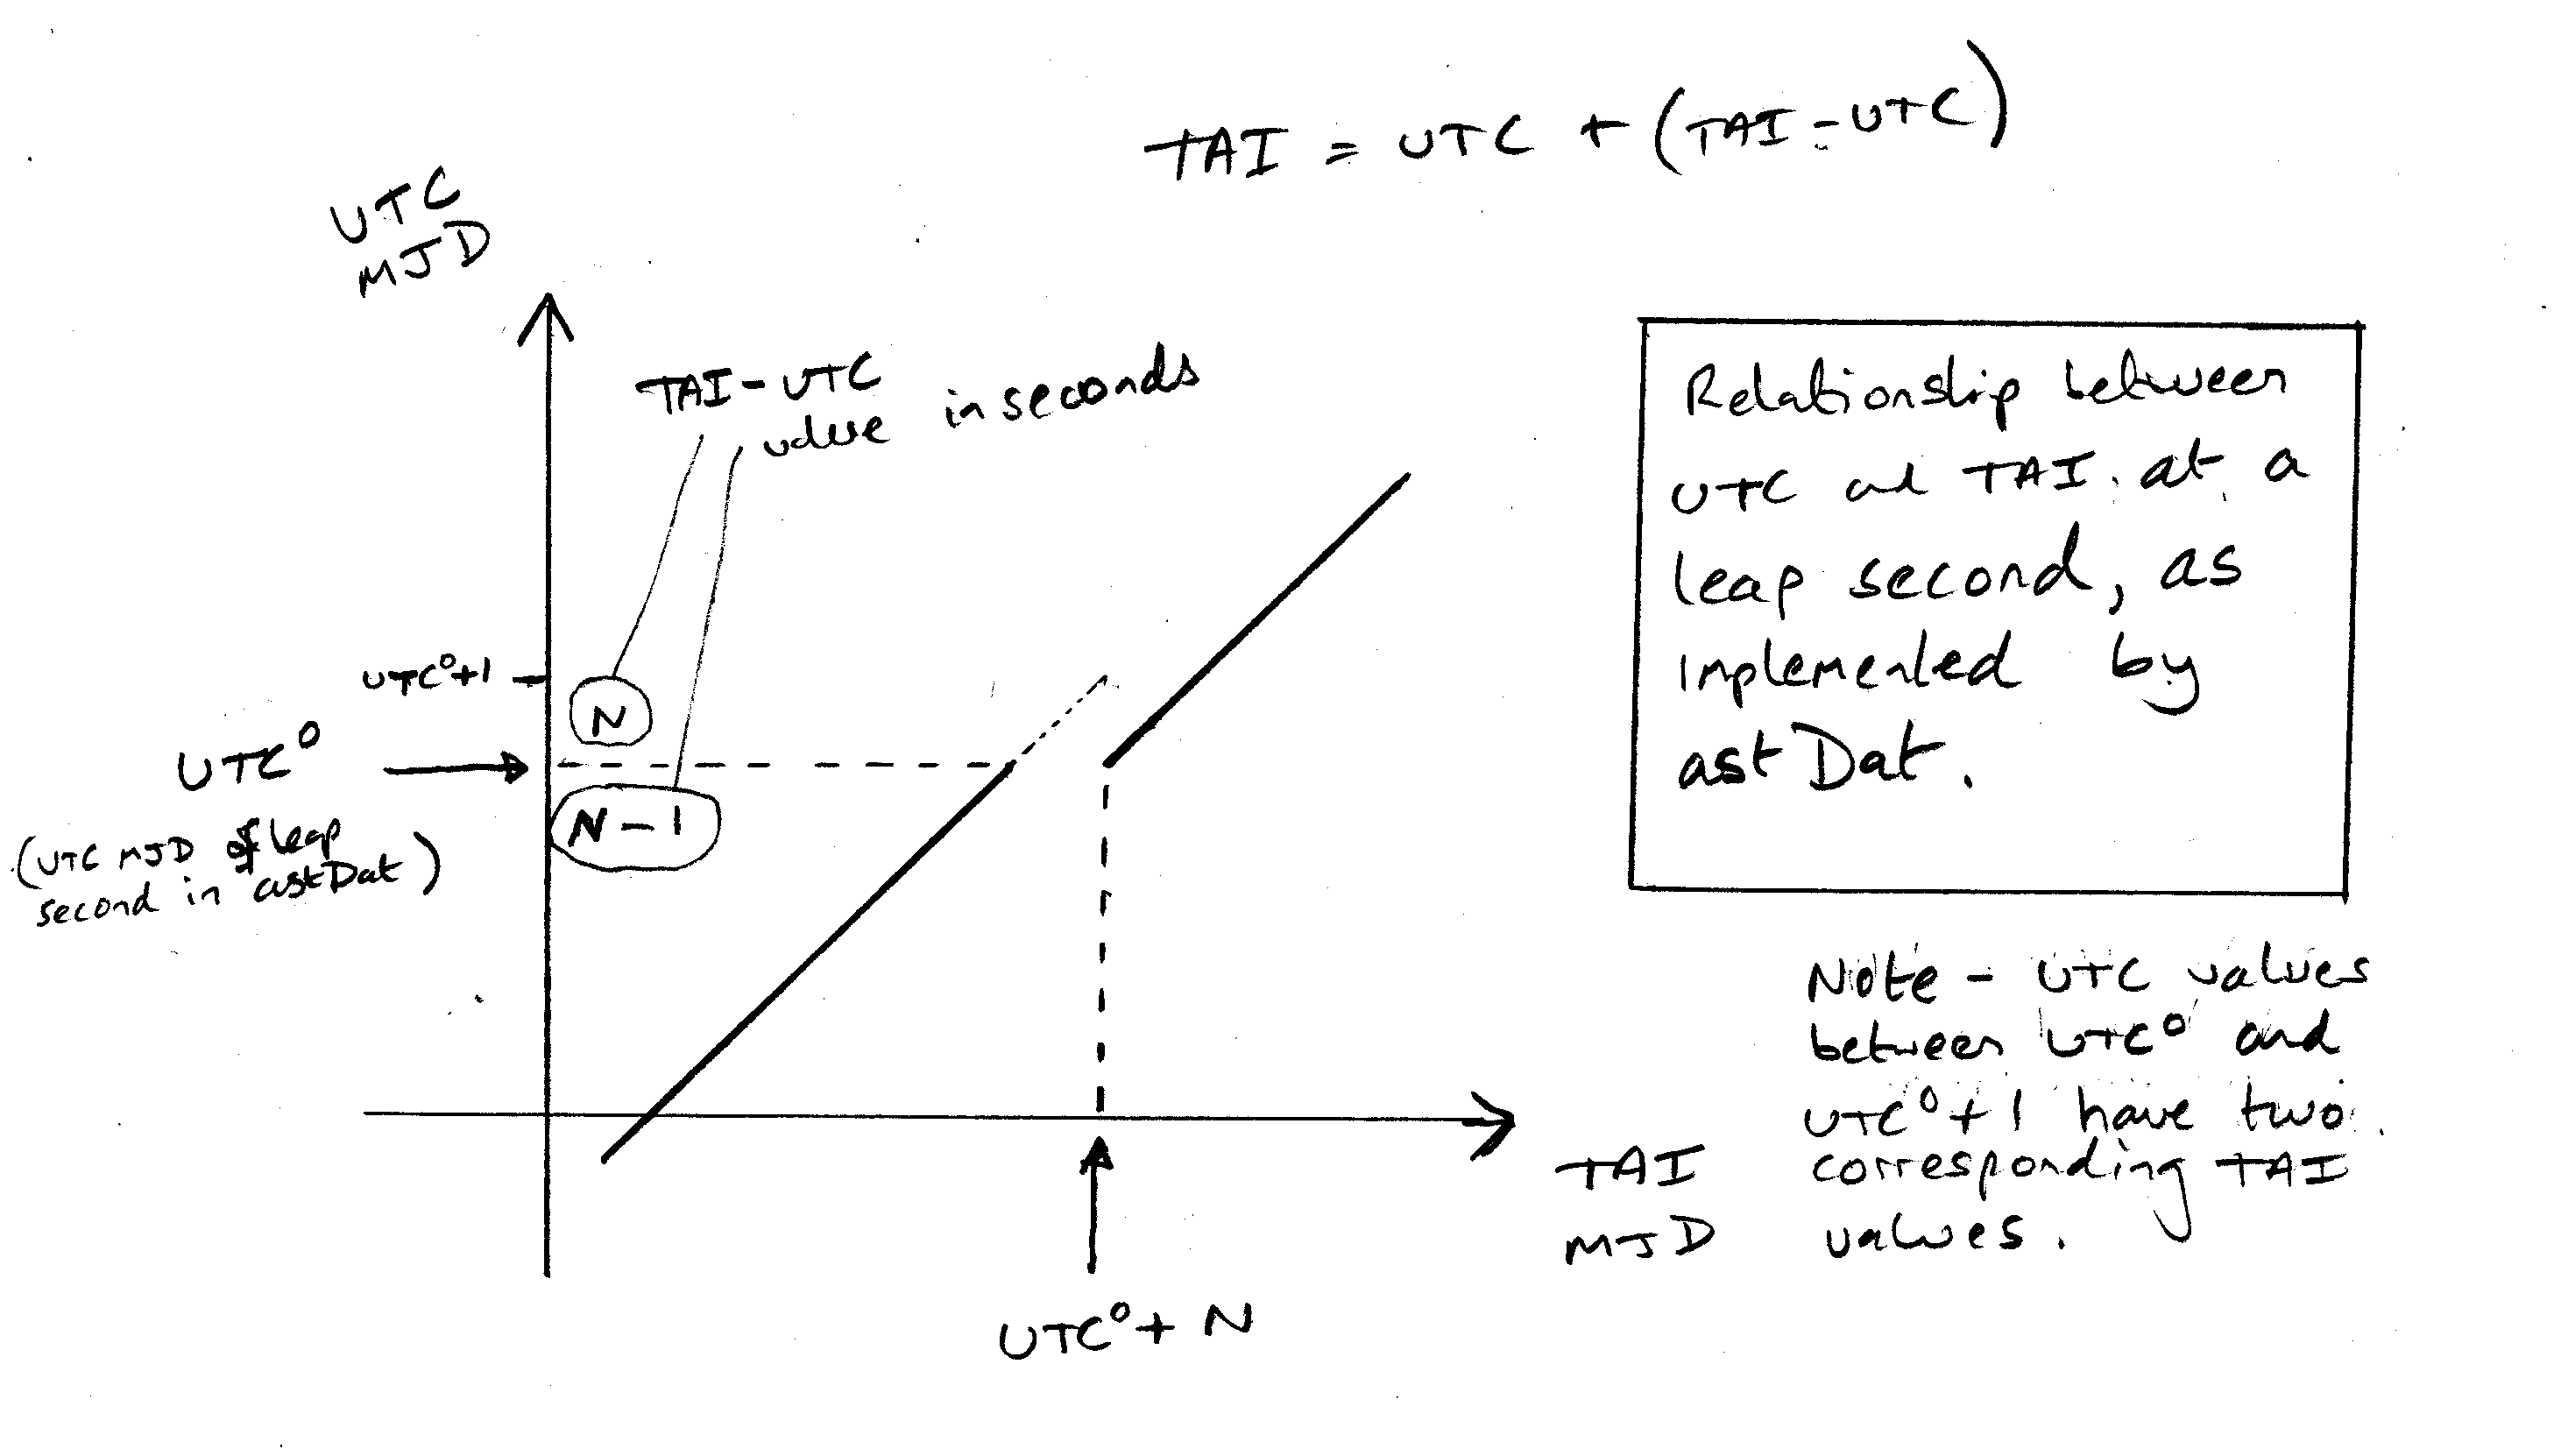 TAI = UTC + (TAI - UTC)
UTC
MJD
TAI - UTC
value in seconds
UTC⁰+1
N
UTC⁰
N - 1
(UTC MJD of leap
second in astDat)
UTC⁰ + N
TAI
MJD
Relationship between
UTC and TAI at a
leap second, as
implemented by
astDat.
Note - UTC values
between UTC⁰ and
UTC⁰+1 have two
corresponding TAI
values.